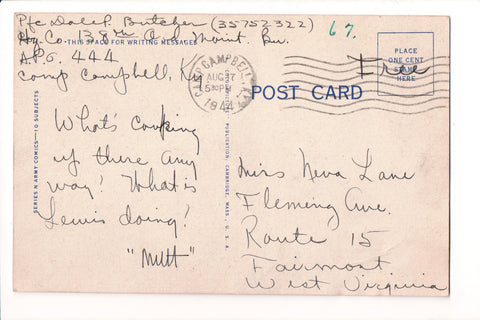 Pfc Dale P. Butcher (35752322)
Hq. Co. 138th Ord. Maint. Bn.
A.P.O. 444
Camp Campbell, Ky
THIS SPACE FOR WRITING MESSAGES
67.
PLACE
ONE CENT
STAMP
HERE
Free
CAMP CAMPBELL, KY.
AUG 17
5 30 PM
1944
POST CARD
SERIES N ARMY COMICS—10 SUBJECTS
PUBLICATION, CAMBRIDGE, MASS., U.S.A.
What's cooking
up there any
way? What is
Lewis doing?
"Mutt"
Miss Neva Lane
Fleming Ave.
Route 15
Fairmont,
West Virginia